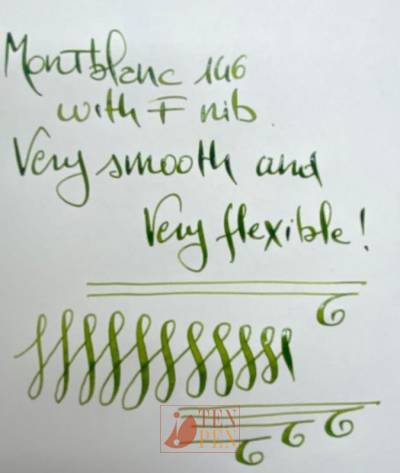 Montblanc 146
with F nib
Very smooth and
Very flexible!
TEN
PEN